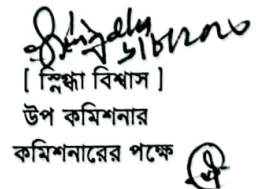 [ স্নিগ্ধা বিশ্বাস ]
উপ কমিশনার
কমিশনারের পক্ষে